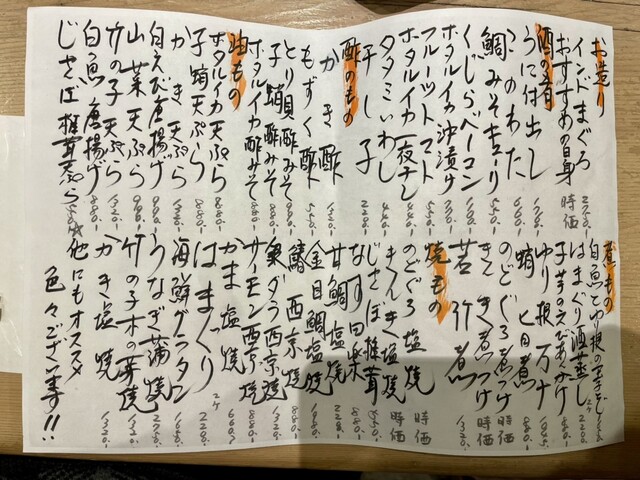 お造り
インドまぐろ 2750.-
おすすめの白身 時価
酒の肴
うに仕出し
このわた 660.-
鯛みそキューリ 550.-
くじらベーコン
ホタルイカ沖漬け
フルーツトマト
ホタルイカ一夜干し
タタミいわし 440.-
干し子 220.-
酢のもの
かき酢
もずく酢 550.-
とり貝酢みそ 990.-
子蛸酢みそ 880.-
ホタルイカ酢みそ 880.-
油もの
ホタルイカ天ぷら
子蛸天ぷら 880.-
かき天ぷら 1320.-
白えび唐揚げ 990.-
山菜天ぷら 990.-
竹の子天ぷら 1320.-
白魚唐揚げ 880.-
じさぼ椎茸天ぷら
煮もの
はまぐり酒蒸し 2ケ 220.-
子芋のえびあんかけ 880.-
ゆり根万十
蛸と旦煮 880.-
のどぐろ煮つけ 時価
きんき煮つけ 時価
若竹煮 1320.-
焼もの
のどぐろ塩焼 時価
きんき塩焼 時価
じさぼ椎茸 550.-
なす田楽 880.-
甘鯛塩焼
金目鯛塩焼 1980.-
鰆西京焼 880.-
銀ダラ西京焼 1320.-
サーモン西京焼 880.-
かま塩焼 660.?
はまぐり 2ケ 220.-
海鮮グラタン 1650.-
うなぎ蒲焼 2750.-
竹の子木の芽焼 1320.-
かき塩焼 1320.-
他にもオススメ
色々ございます!!